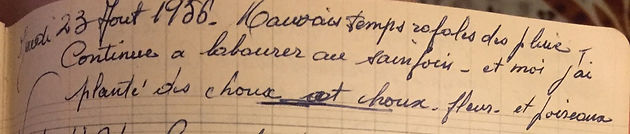 Jeudi 23 Aout 1956. Mauvais temps rafales des pluie -
Continue a labourer au sainfoin - et moi j'ai
planté des choux et choux-fleur - et poireaux